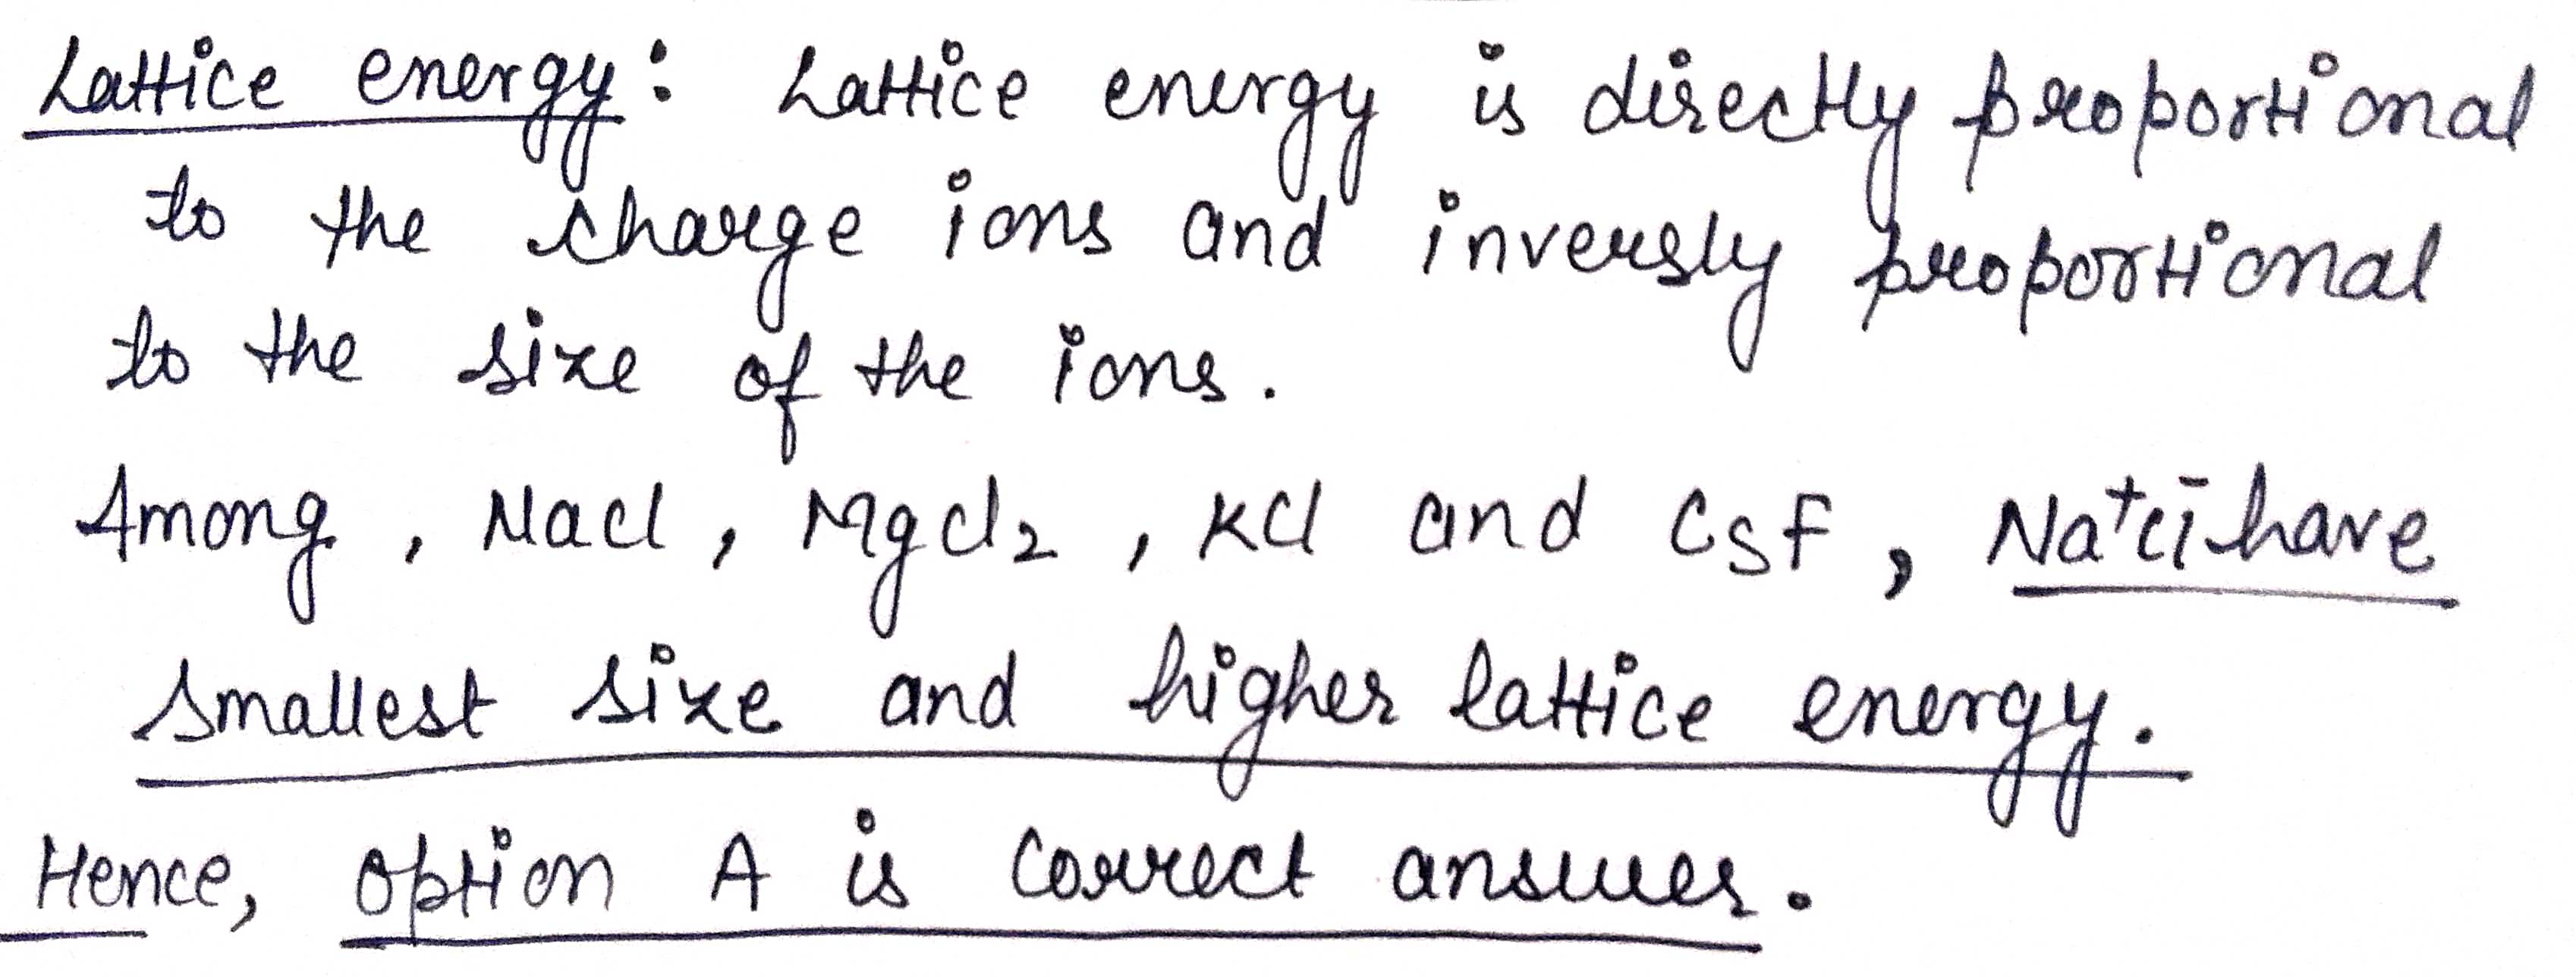 Lattice energy: Lattice energy is directly proportional
to the charge ions and inversly proportional
to the size of the ions.
Among, NaCl, MgCl₂, KCl and CsF, Na⁺Cl⁻ have
smallest size and higher lattice energy.
Hence, option A is correct answer.